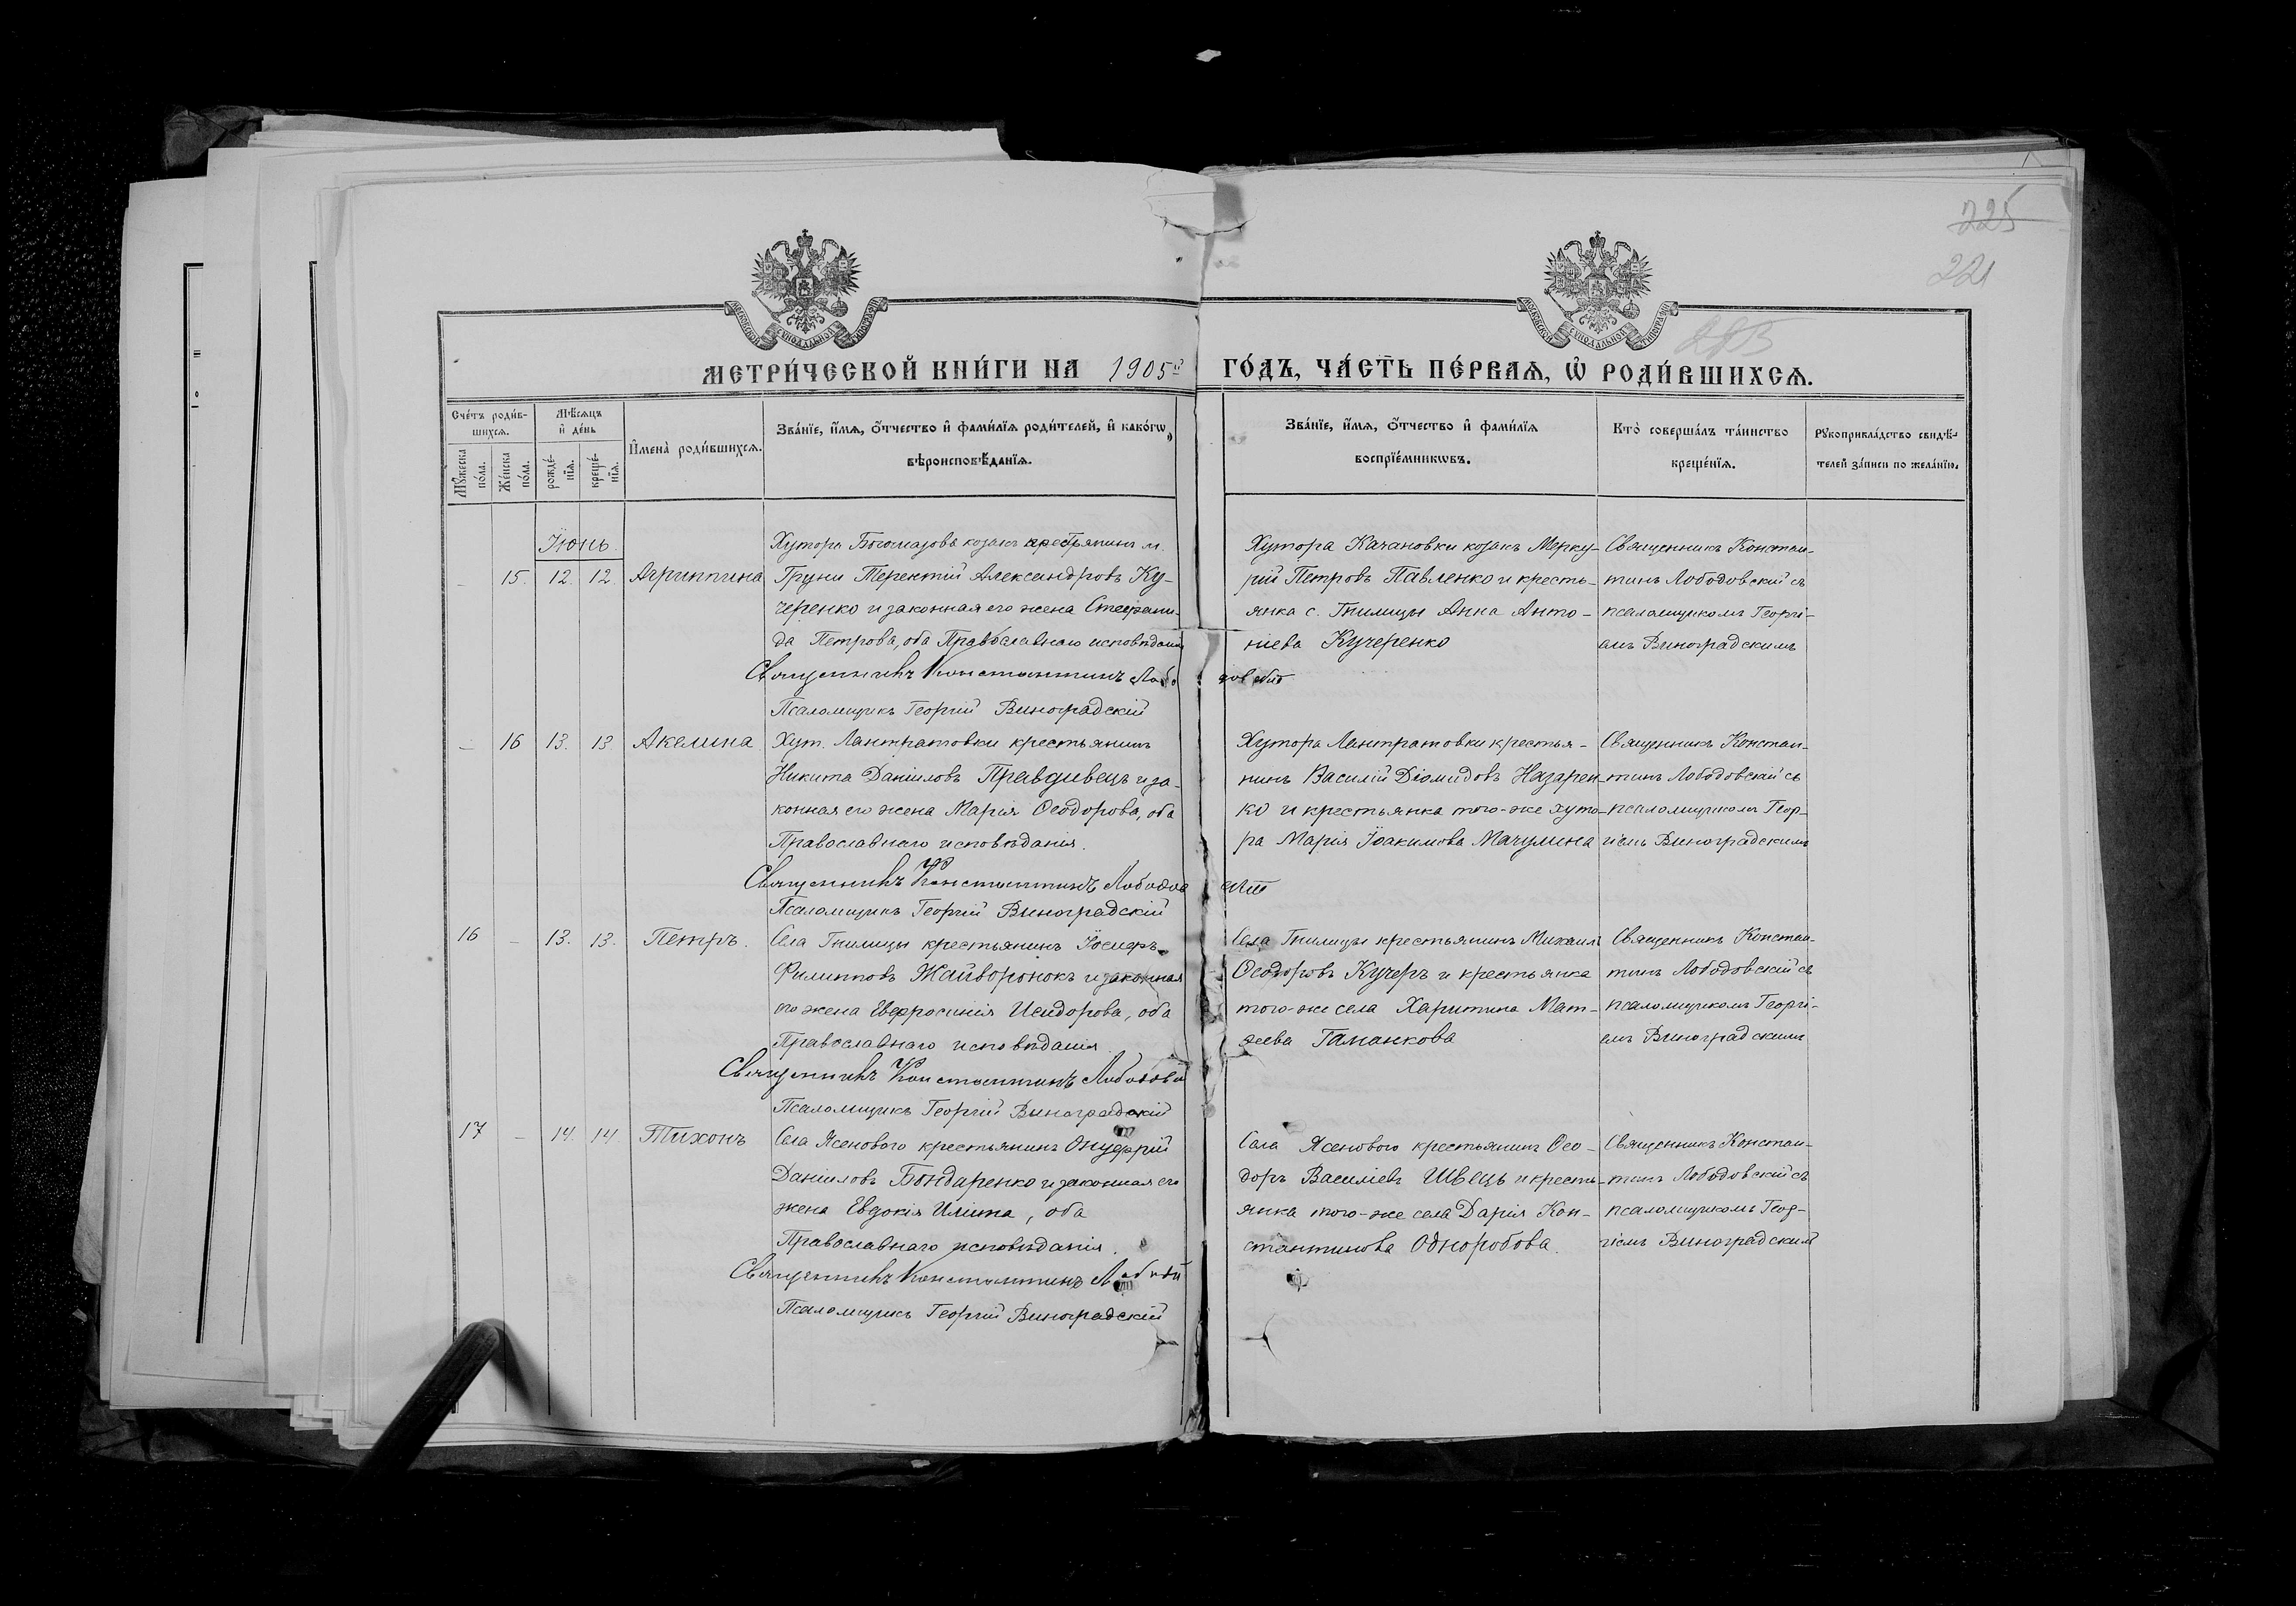 225
221
МОСКОВСКОЙ СУНОДАЛЬНОЙ ТИПОГРАФІИ
МОСКОВСКОЙ СУНОДАЛЬНОЙ ТИПОГРАФІИ
МЕТРИ́ЧЕСКОЙ КНИ́ГИ НА 1905й ГО́ДЪ, ЧА́СТЬ ПЕ́РВАЯ, Ѡ РОДИ́ВШИХСЯ.
Сче́тъ роди́в-
шихсѧ.
Мꙋ́жеска по́ла.
Же́нска по́ла.
Мѣ́сѧцъ и҆ де́нь
рожде́-
нїѧ.
креще́-
нїѧ.
И҆мена̀ роди́вшихсѧ.
Зва́нїе, и҆́мѧ, ѻ҆́тчество и҆ фами́лїѧ роди́телей, и҆ како́гѡ
вѣроисповѣ́данїѧ.
Зва́нїе, и҆́мѧ, ѻ҆́тчество и҆ фами́лїѧ
воспрїе́мникѡвъ.
Кто̀ соверша́лъ та́инство
креще́нїѧ.
Рꙋкоприкла́дство свидѣ́-
телей за́писи по жела́нїю.
Іюнь.
15. 12. 12. Агриппина
Хутора Богомазовъ козакъ крестьянинъ м.
Груни Терентій Александровъ Ку-
черенко и законная его жена Стефани-
да Петрова, оба Православнаго исповѣданія
Священникъ Константинъ Лободовскій
Псаломщикъ Георгій Виноградскій
Хутора Качановки козакъ Мерку-
рій Петровъ Павленко и кресть-
янка с. Гнилицы Анна Анто-
ніева Кучеренко
Священникъ Констан-
тинъ Лободовскій съ
псаломщикомъ Георгі-
емъ Виноградскимъ
– 16 13. 13 Акелина
Хут. Лантратовки крестьянинъ
Никита Даніиловъ Правдивецъ и за-
конная его жена Марія Ѳеодорова, оба
Православнаго исповѣданія.
Священникъ Константинъ Лободов
Псаломщикъ Георгій Виноградскій
Хутора Лантратовки крестья-
нинъ Василій Діомидовъ Назарен-
ко и крестьянка того-же хуто-
ра Марія Іоакимова Мачулина
Священникъ Констан-
тинъ Лободовскій съ
псаломщикомъ Геор-
гіемъ Виноградскимъ
16 – 13. 13. Петръ.
Села Гнилицы крестьянинъ Іосифъ
Филипповъ Жайворонокъ и законная
его жена Евфросинія Исидорова, оба
Православнаго исповѣданія
Священникъ Константинъ Лободовскій
Псаломщикъ Георгій Виноградскій
Села Гнилицы крестьянинъ Михаилъ
Ѳеодоровъ Кучеръ и крестьянка
того-же села Харитина Мат-
ѳеева Гаманкова
Священникъ Констан-
тинъ Лободовскій съ
псаломщикомъ Георгі-
емъ Виноградскимъ
17 – 14. 14. Тихонъ
Села Ясенового крестьянинъ Онуфрій
Даніиловъ Бондаренко и законная его
жена Евдокія Иліина, оба
Православнаго исповѣданія.
Священникъ Константинъ
Псаломщикъ Георгій Виноградскій
Села Ясенового крестьянинъ Ѳео-
доръ Василіевъ Швецъ и кресть-
янка того-же села Дарія Кон-
стантинова Однороброва.
Священникъ Констан-
тинъ Лободовскій съ
псаломщикомъ Геор-
гіемъ Виноградскимъ